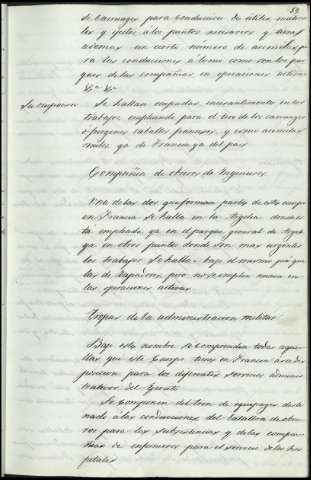 59
de carruages para conduccion de utiles, materia
les y efectos á los puntos necesarios y
ademas un cierto numero de acemilas pa
ra las conducciones a lomo como son los par
ques de las compañias en operaciones activas
&ª &ª
Su empleo Se hallan empleadas incesantemente en los
trabajos, empleando para el tiro de los carruages
ó furgones caballos franceses, y como acemilas
mulas ya de Francia ya del pais
Compañia de obreros de Ingenieros
Una de las dos que forman parte de este cuerpo
en Francia se halla en la Argelia donde es
tá empleada ya en el parque general de Argel
ya en otros puntos donde son mas urgentes
los trabajos. Se halla bajo el mismo pié que
las de Zapadores, pero no se emplea nunca en
las operaciones activas
Tropas de la administracion militar
Bajo este nombre se comprenden todas aque
llas que este Cuerpo tiene en Francia á su dis
posicion para los diferentes servicios adminis
trativos del Egercito
Se componen del tren de equipages desti
nado á las conducciones del batallon de obre
ros para las subsistencias y de las compa
ñias de enfermeros para el servicio de los hos
pitales